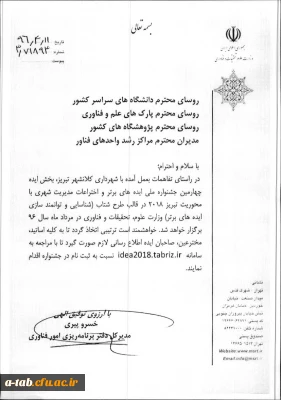 بسمه تعالی
جمهوری اسلامی ایران
تاریخ ۹۶,۴,۱۱
شماره ۳/۷۱۸۹۳
پیوست
روسای محترم دانشگاه های سراسر کشور
روسای محترم پارک های علم و فناوری
روسای محترم پژوهشگاه های کشور
مدیران محترم مراکز رشد واحدهای فناور
با سلام و احترام؛
در راستای تفاهمات بعمل آمده با شهرداری کلانشهر تبریز، بخش ایده
چهارمین جشنواره ملی ایده های برتر و اختراعات مدیریت شهری با
محوریت تبریز ۲۰۱۸ در قالب طرح شتاب (شناسایی و توانمند سازی
ایده های برتر) وزارت علوم، تحقیقات و فناوری در مرداد ماه سال ۹۶
برگزار خواهد شد. خواهشمند است ترتیبی اتخاذ گردد تا به کلیه اساتید،
مخترعین، صاحبان ایده اطلاع رسانی لازم صورت گیرد تا با مراجعه به
سامانه idea2018.tabriz.ir نسبت به ثبت نام در جشنواره اقدام
نمایند.
با آرزوی توفیق الهی
خسرو پیری
مدیرکل دفتر برنامه‌ریزی امور فناوری
نشانی
a-tab.cfu.ac.ir